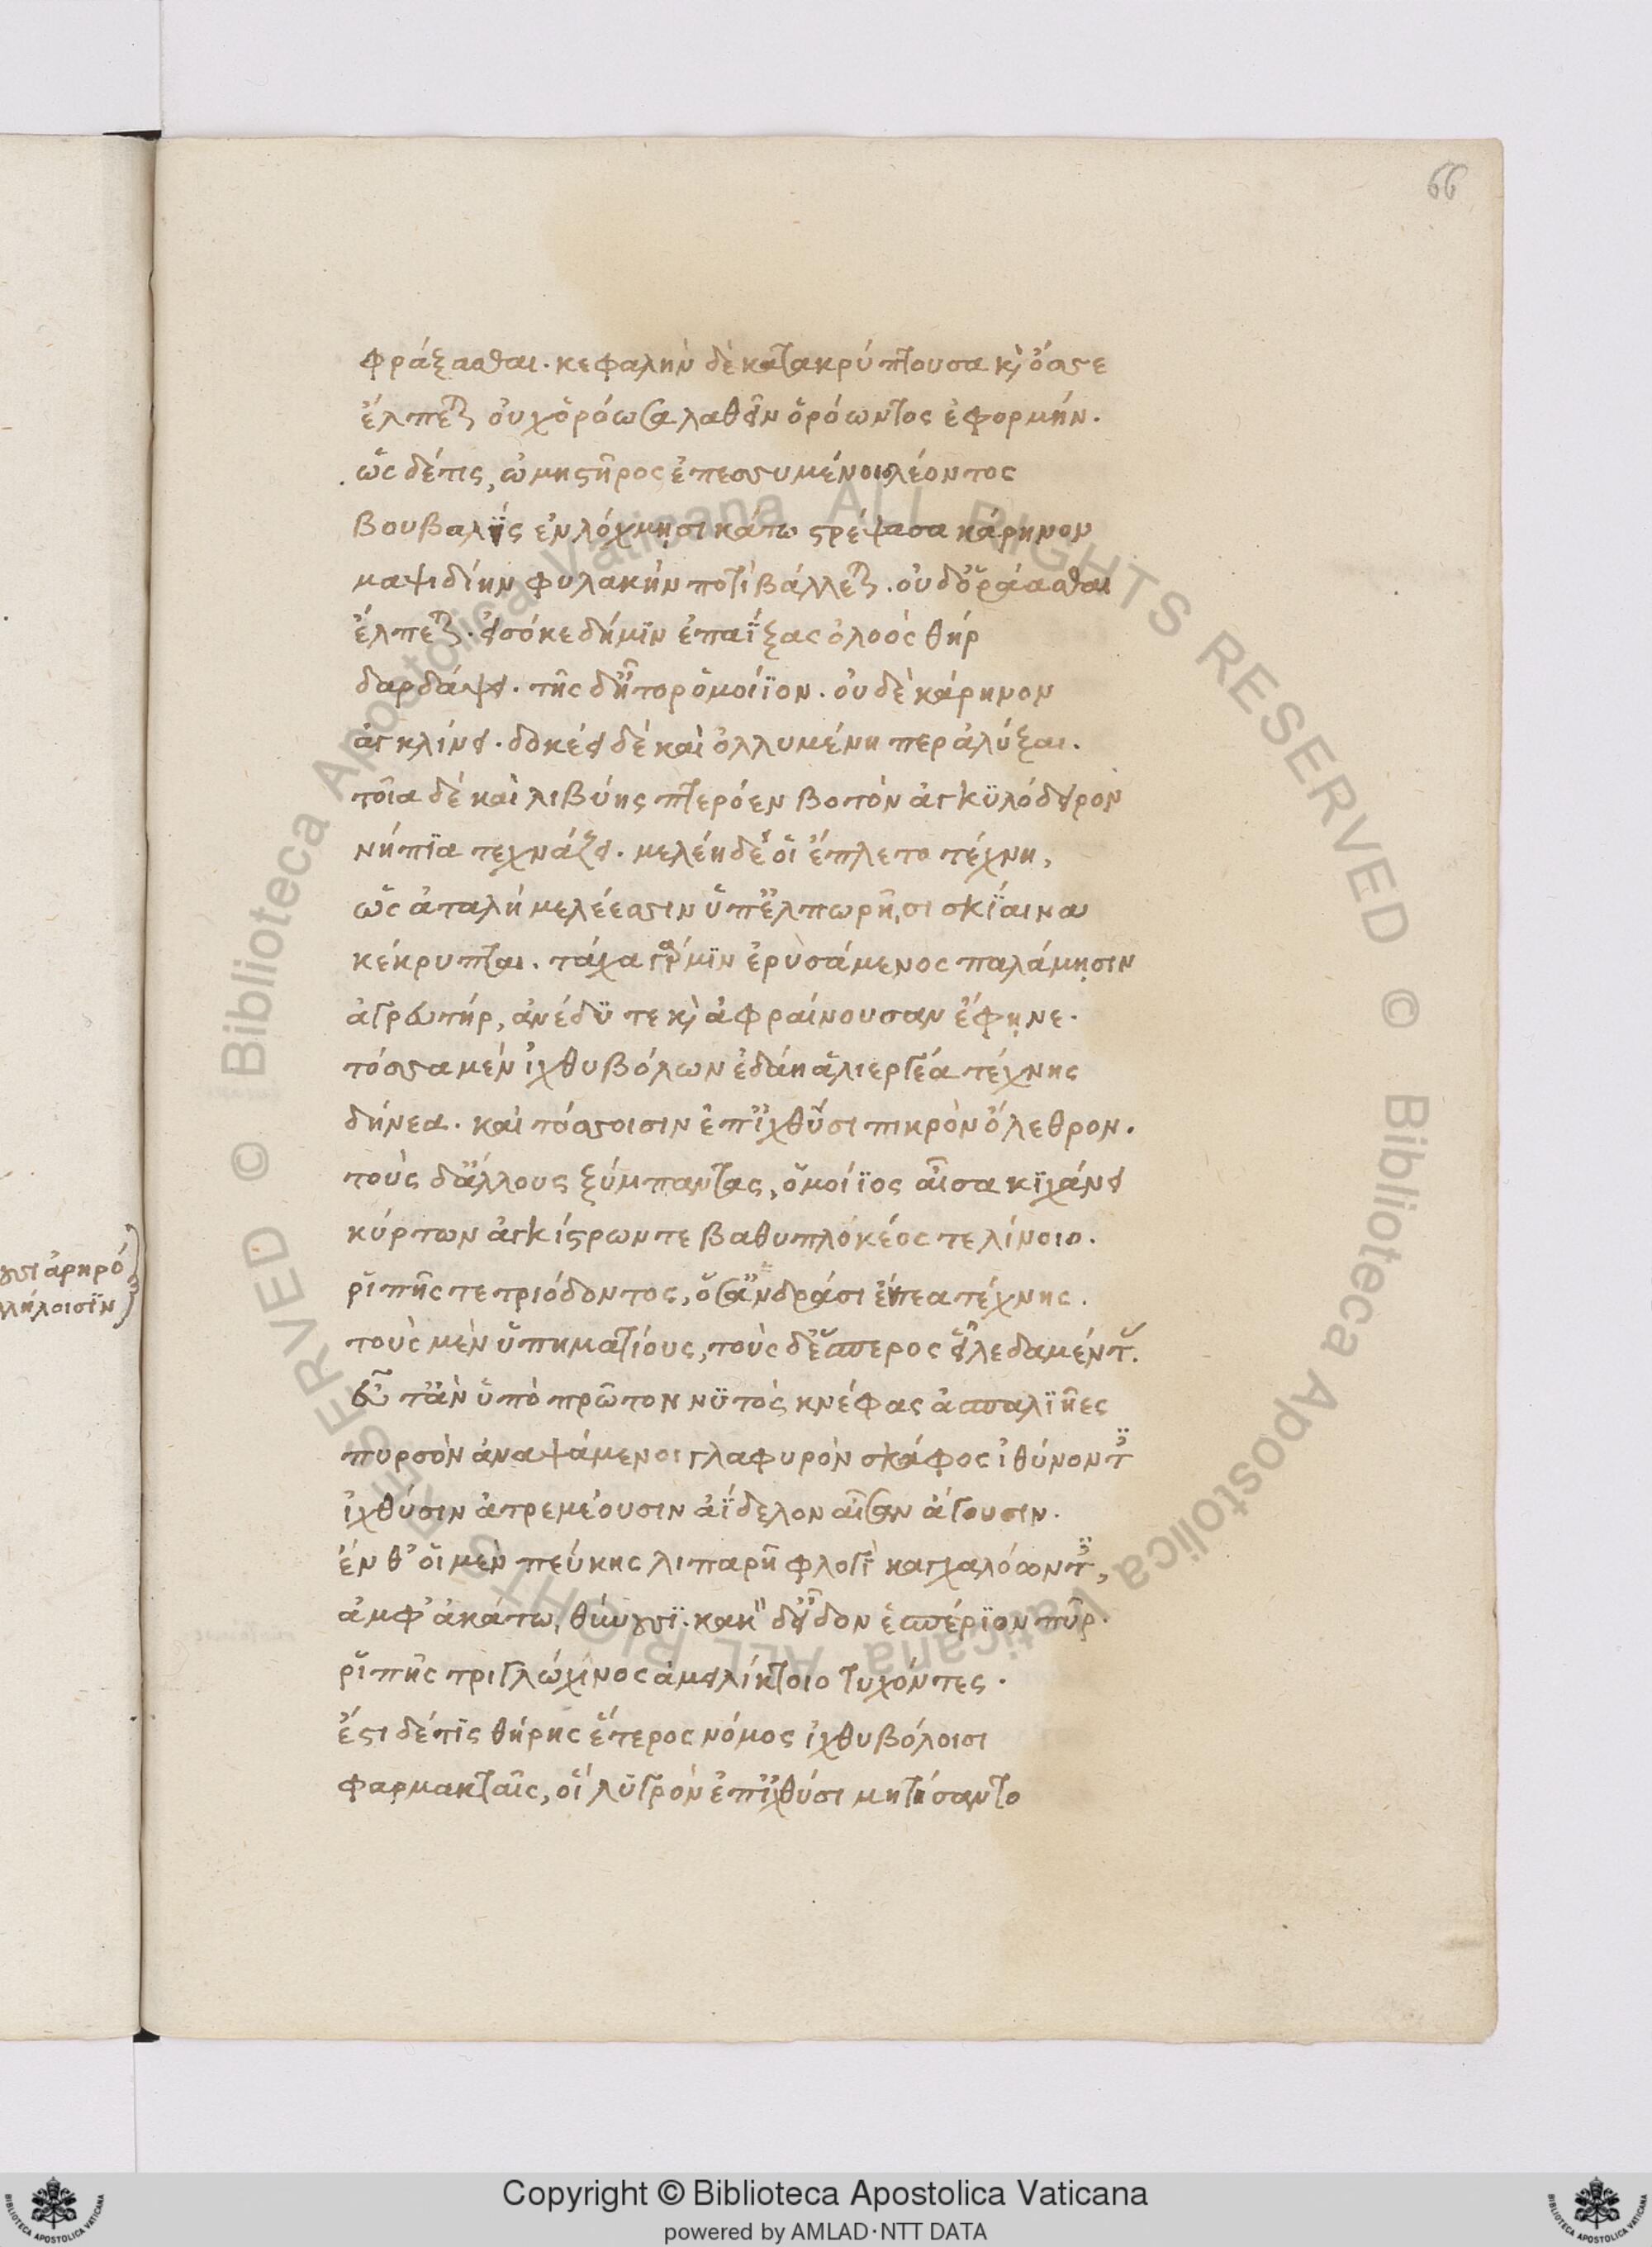 66
φράξασθαι. κεφαλὴν δὲ κατακρύπτουσα κὶ ὄσσε
ἔλπεται οὐχ ὁρόωσα λαθεῖν ὁρόωντος ἐφορμήν.
ὡς δέ τις, ὠμηστῆρος ἐπεσσυμένοιο λέοντος
βουβαλὶς ἐν λόχμῃσι κάτω στρέψασα κάρηνον
μαψιδίην φυλακὴν ποτιβάλλεται. οὐδ' ὁράασθαι
ἔλπεται. εἰσόκε δή μϊν ἐπαΐξας ὀλοὸς θὴρ
δαρδάψει. τῆς δ' ἦτορ ὁμοίϊον. οὐδὲ κάρηνον
ἀγκλίνει. δοκέει δὲ καὶ ὀλλυμένη περ ἀλύξαι.
τοῖα δὲ καὶ λιβύης πτερόεν βοτὸν ἀγκϋλόδειρον
νήπϊα τεχνάζει. μελέη δέ οἱ ἔπλετο τέχνη,
ὡς ἀταλὴ μελέεσσιν ὑπ' ἐλπωρῇσι σκΐαινα
κέκρυπται. τάχα γάρ μϊν ἐρυσάμενος παλάμῃσιν
ἀγρωτήρ, ἀνέδϋ τε κὶ ἀφραίνουσαν ἔφηνε.
τόσσα μὲν ἰχθυβόλων ἐδάην ἁλιεργέα τέχνης
δήνεα. καὶ τόσσοισιν ἐπ' ἰχθύσι πικρὸν ὄλεθρον.
τοὺς δ' ἄλλους ξύμπαντας, ὁμοίϊος αἶσα κϊχάνει
κύρτων ἀγκίστρων τε βαθυπλοκέος τε λίνοιο.
ῥιπῆς τε τριόδοντος, ὅσ' ἀνδράσι ἔντεα τέχνης.
τοὺς μὲν ὑπηματίους, τοὺς δ' ἕσπερος εἷλε δαμέντας.
εὖτ' ἂν ὑπὸ πρῶτον νϋτὸς κνέφας ἀσπαλϊῆες
πυρσὸν ἀναψάμενοι γλαφυρὸν σκάφος ἰθύνοντες
ἰχθύσιν ἀτρεμέουσιν ἀΐδελον αἶσαν ἄγουσιν.
ἔνθ' οἱ μὲν πεύκης λιπαρῇ φλογὶ καγχαλόωντες,
ἀμφ' ἀκάτῳ θύνουσϊ. κακὸν δ' εἶδον ἑσπέρϊον πῦρ.
ῥιπῆς τριγλώχινος ἀμειλίκτοιο τυχόντες.
ἔστι δέ τϊς θήρης ἕτερος νόμος ἰχθυβόλοισι
φαρμακταῖς, οἳ λϋγρὸν ἐπ' ἰχθύσι μητίσαντο